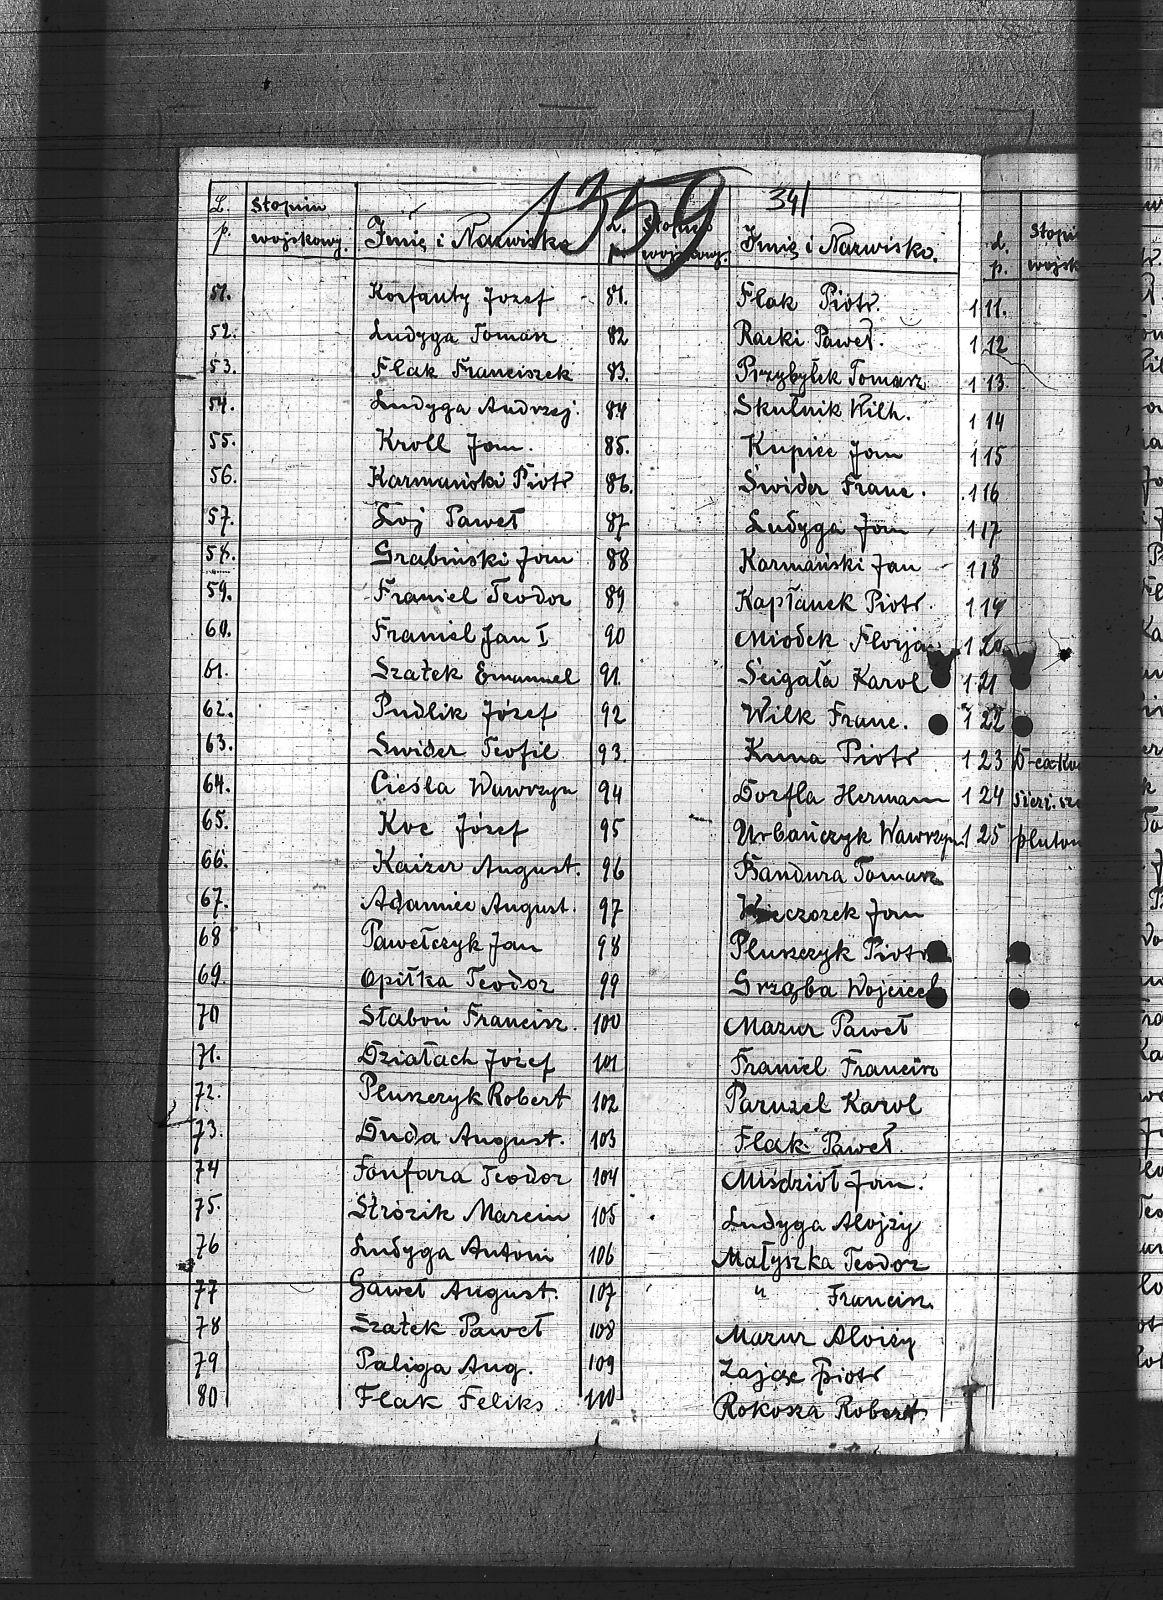 1359
341
L. p. Stopień wojskowy. Imię i Nazwisko L. p. Stopień wojskowy. Imię i Nazwisko. L. p. Stopi wojsk
51. Korfanty Józef 81. Flak Piotr. 111.
52. Ludyga Tomasz 82 Racki Paweł. 112
53. Flak Franciszek 83. Przybyłek Tomasz 113
54. Ludyga Andrzej. 84 Skutnik Wilh. 114
55. Kroll Jan. 85. Kupiec Jan 115
56. Karmański Piotr 86. Świder Franc. 116
57. Loj Paweł 87 Ludyga Jan 117
58. Grabiński Jan 88 Karmański Jan 118
59. Franiel Teodor 89 Kapłanek Piotr. 119
60. Franiel Jan I 90 Miodek Florja 120
61. Szałek Emanuel 91. Ścigała Karol 121
62. Pudlik Józef 92 Wilk Franc. 122
63. Świder Teofil 93. Kuna Piotr 123 D-ca
64. Cieśla Wawrzyn 94 Dorfla Hermann 124
65. Koc Józef 95 Urbańczyk Wawrzyn. 125 pluton
66. Kaizer August. 96 Bandura Tomasz
67. Adamiec August. 97 Wieczorek Jan
68 Pawełczyk Jan 98 Pluszczyk Piotr
69. Opiłka Teodor 99 Grząba Wojciech
70 Słaboń Francisz. 100 Mazur Paweł
71. Działach Józef 101 Franiel Francisz
72. Pluszczyk Robert 102 Paruzel Karol
73. Duda August. 103 Flak Paweł.
74 Fonfara Teodor 104 Miśdzioł Jan.
75. Strózik Marcin 105 Ludyga Alojzy
76 Ludyga Antoni 106 Małyszka Teodor
77 Gaweł August. 107 " Francisz.
78 Szałek Paweł 108 Mazur Aloizy
79 Paliga Aug. 109 Zając Piotr
80 Flak Feliks 110 Rokosza Robert